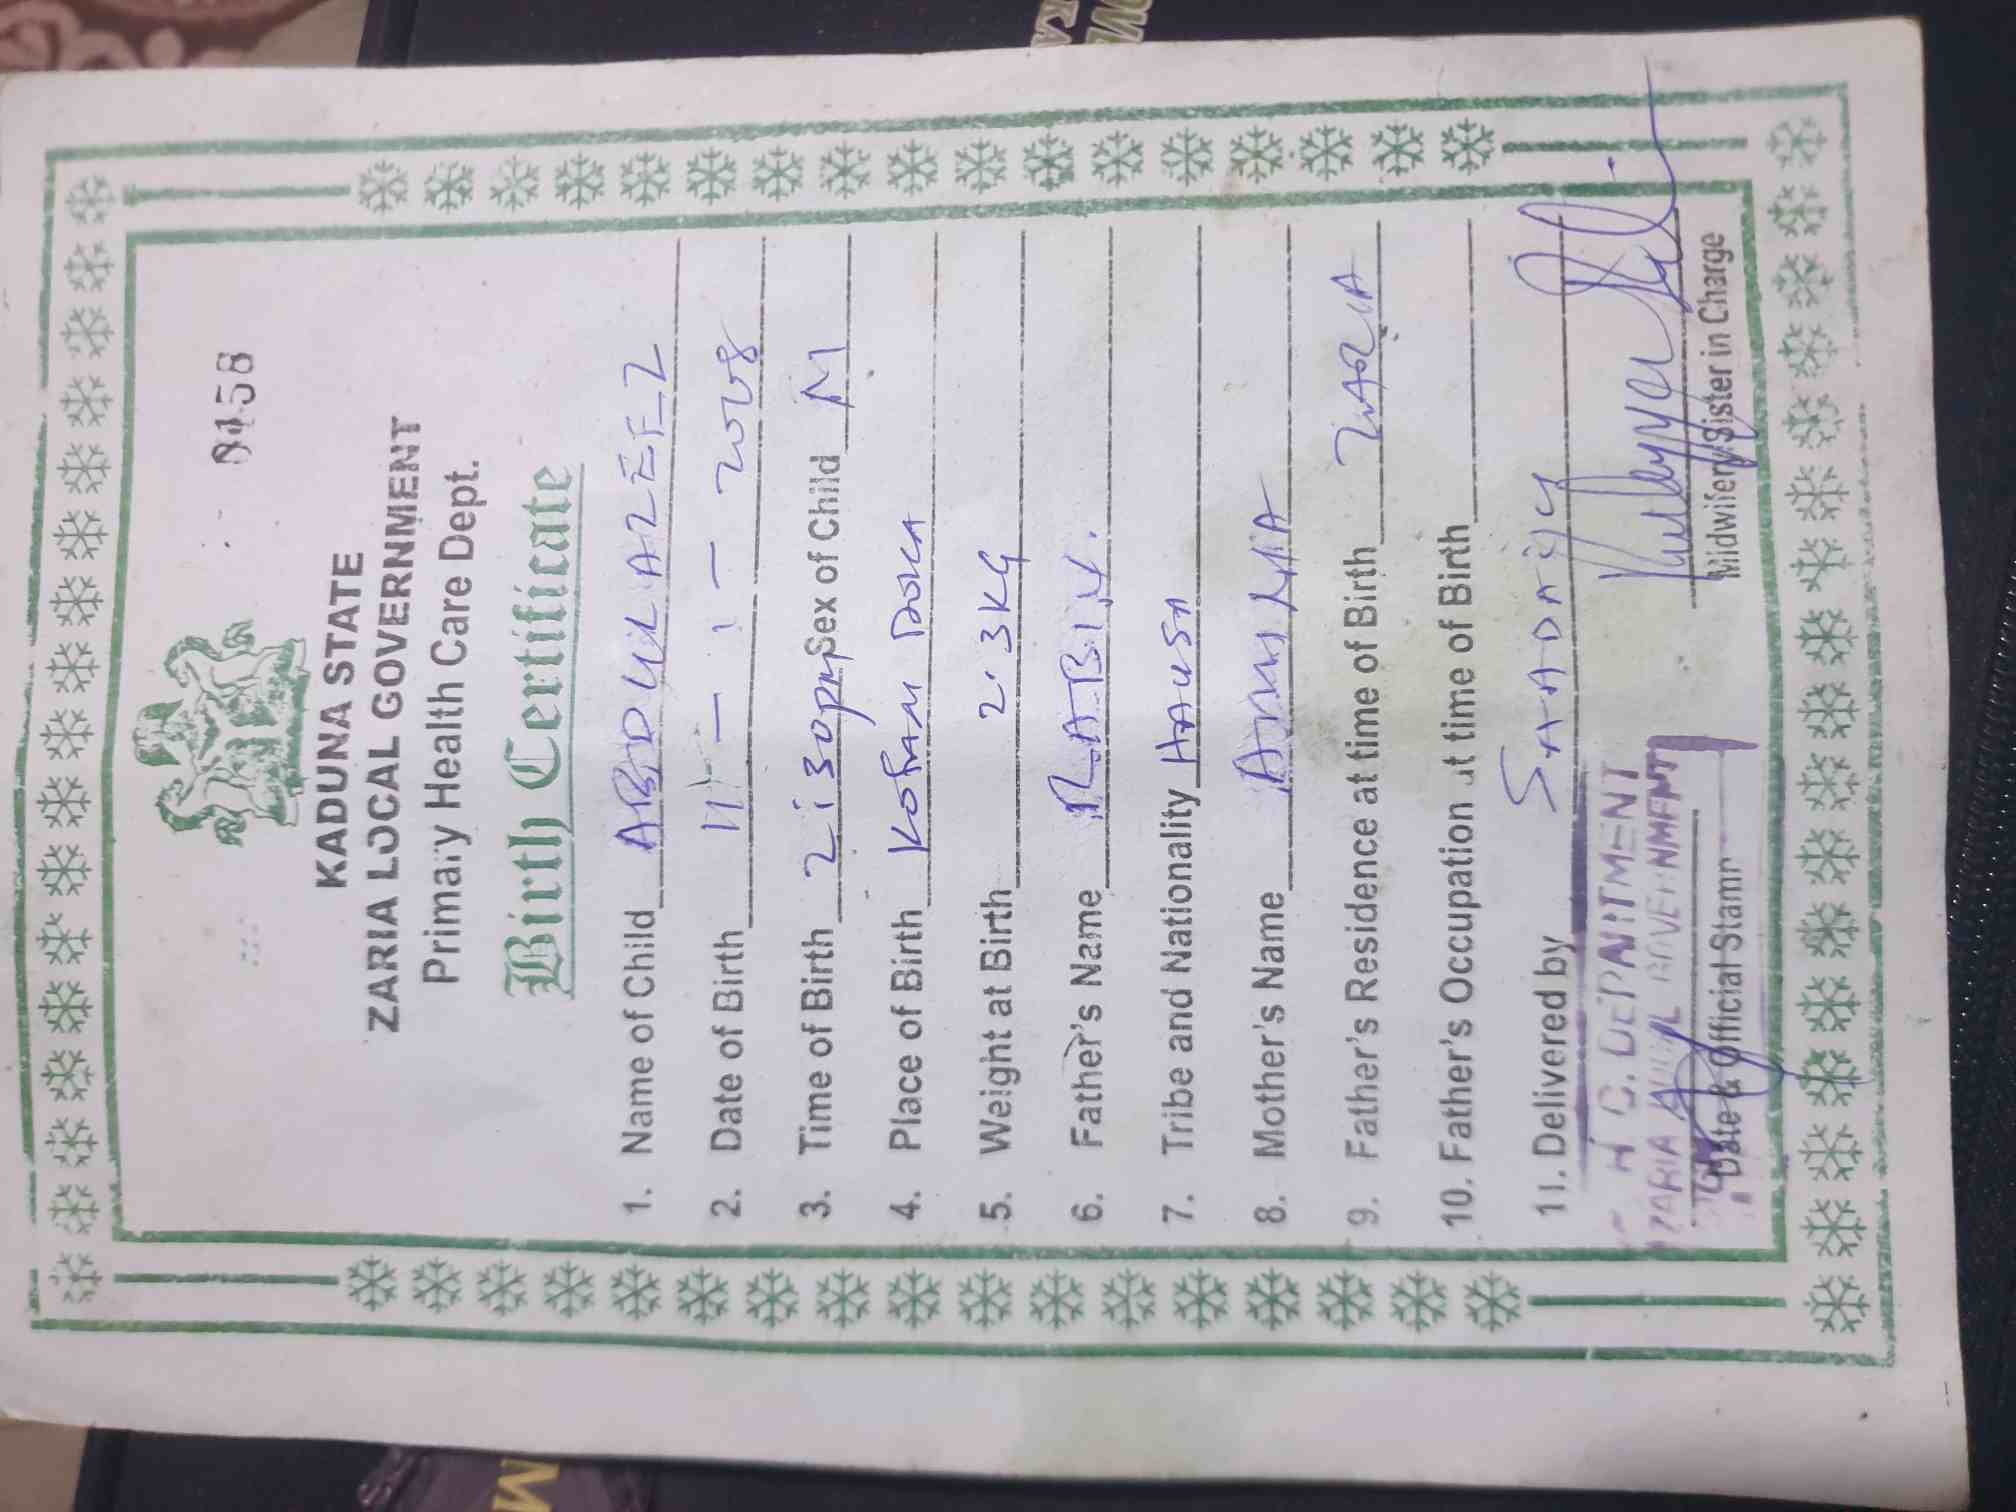 0458
KADUNA STATE
ZARIA LOCAL GOVERNMENT
Primary Health Care Dept.
Birth Certificate
1. Name of Child ABDULAZEEZ
2. Date of Birth 11 - 1 - 2008
3. Time of Birth 2:30pm Sex of Child M
4. Place of Birth Kofan Doka
5. Weight at Birth 2.3KG
6. Father's Name RABIU.
7. Tribe and Nationality HAUSA
8. Mother's Name
9. Father's Residence at time of Birth ZARIA
10. Father's Occupation at time of Birth
11. Delivered by
DEPARTMENT
ZARIA GOVERNMENT
Date & Official Stamp
Midwifery/Sister in Charge